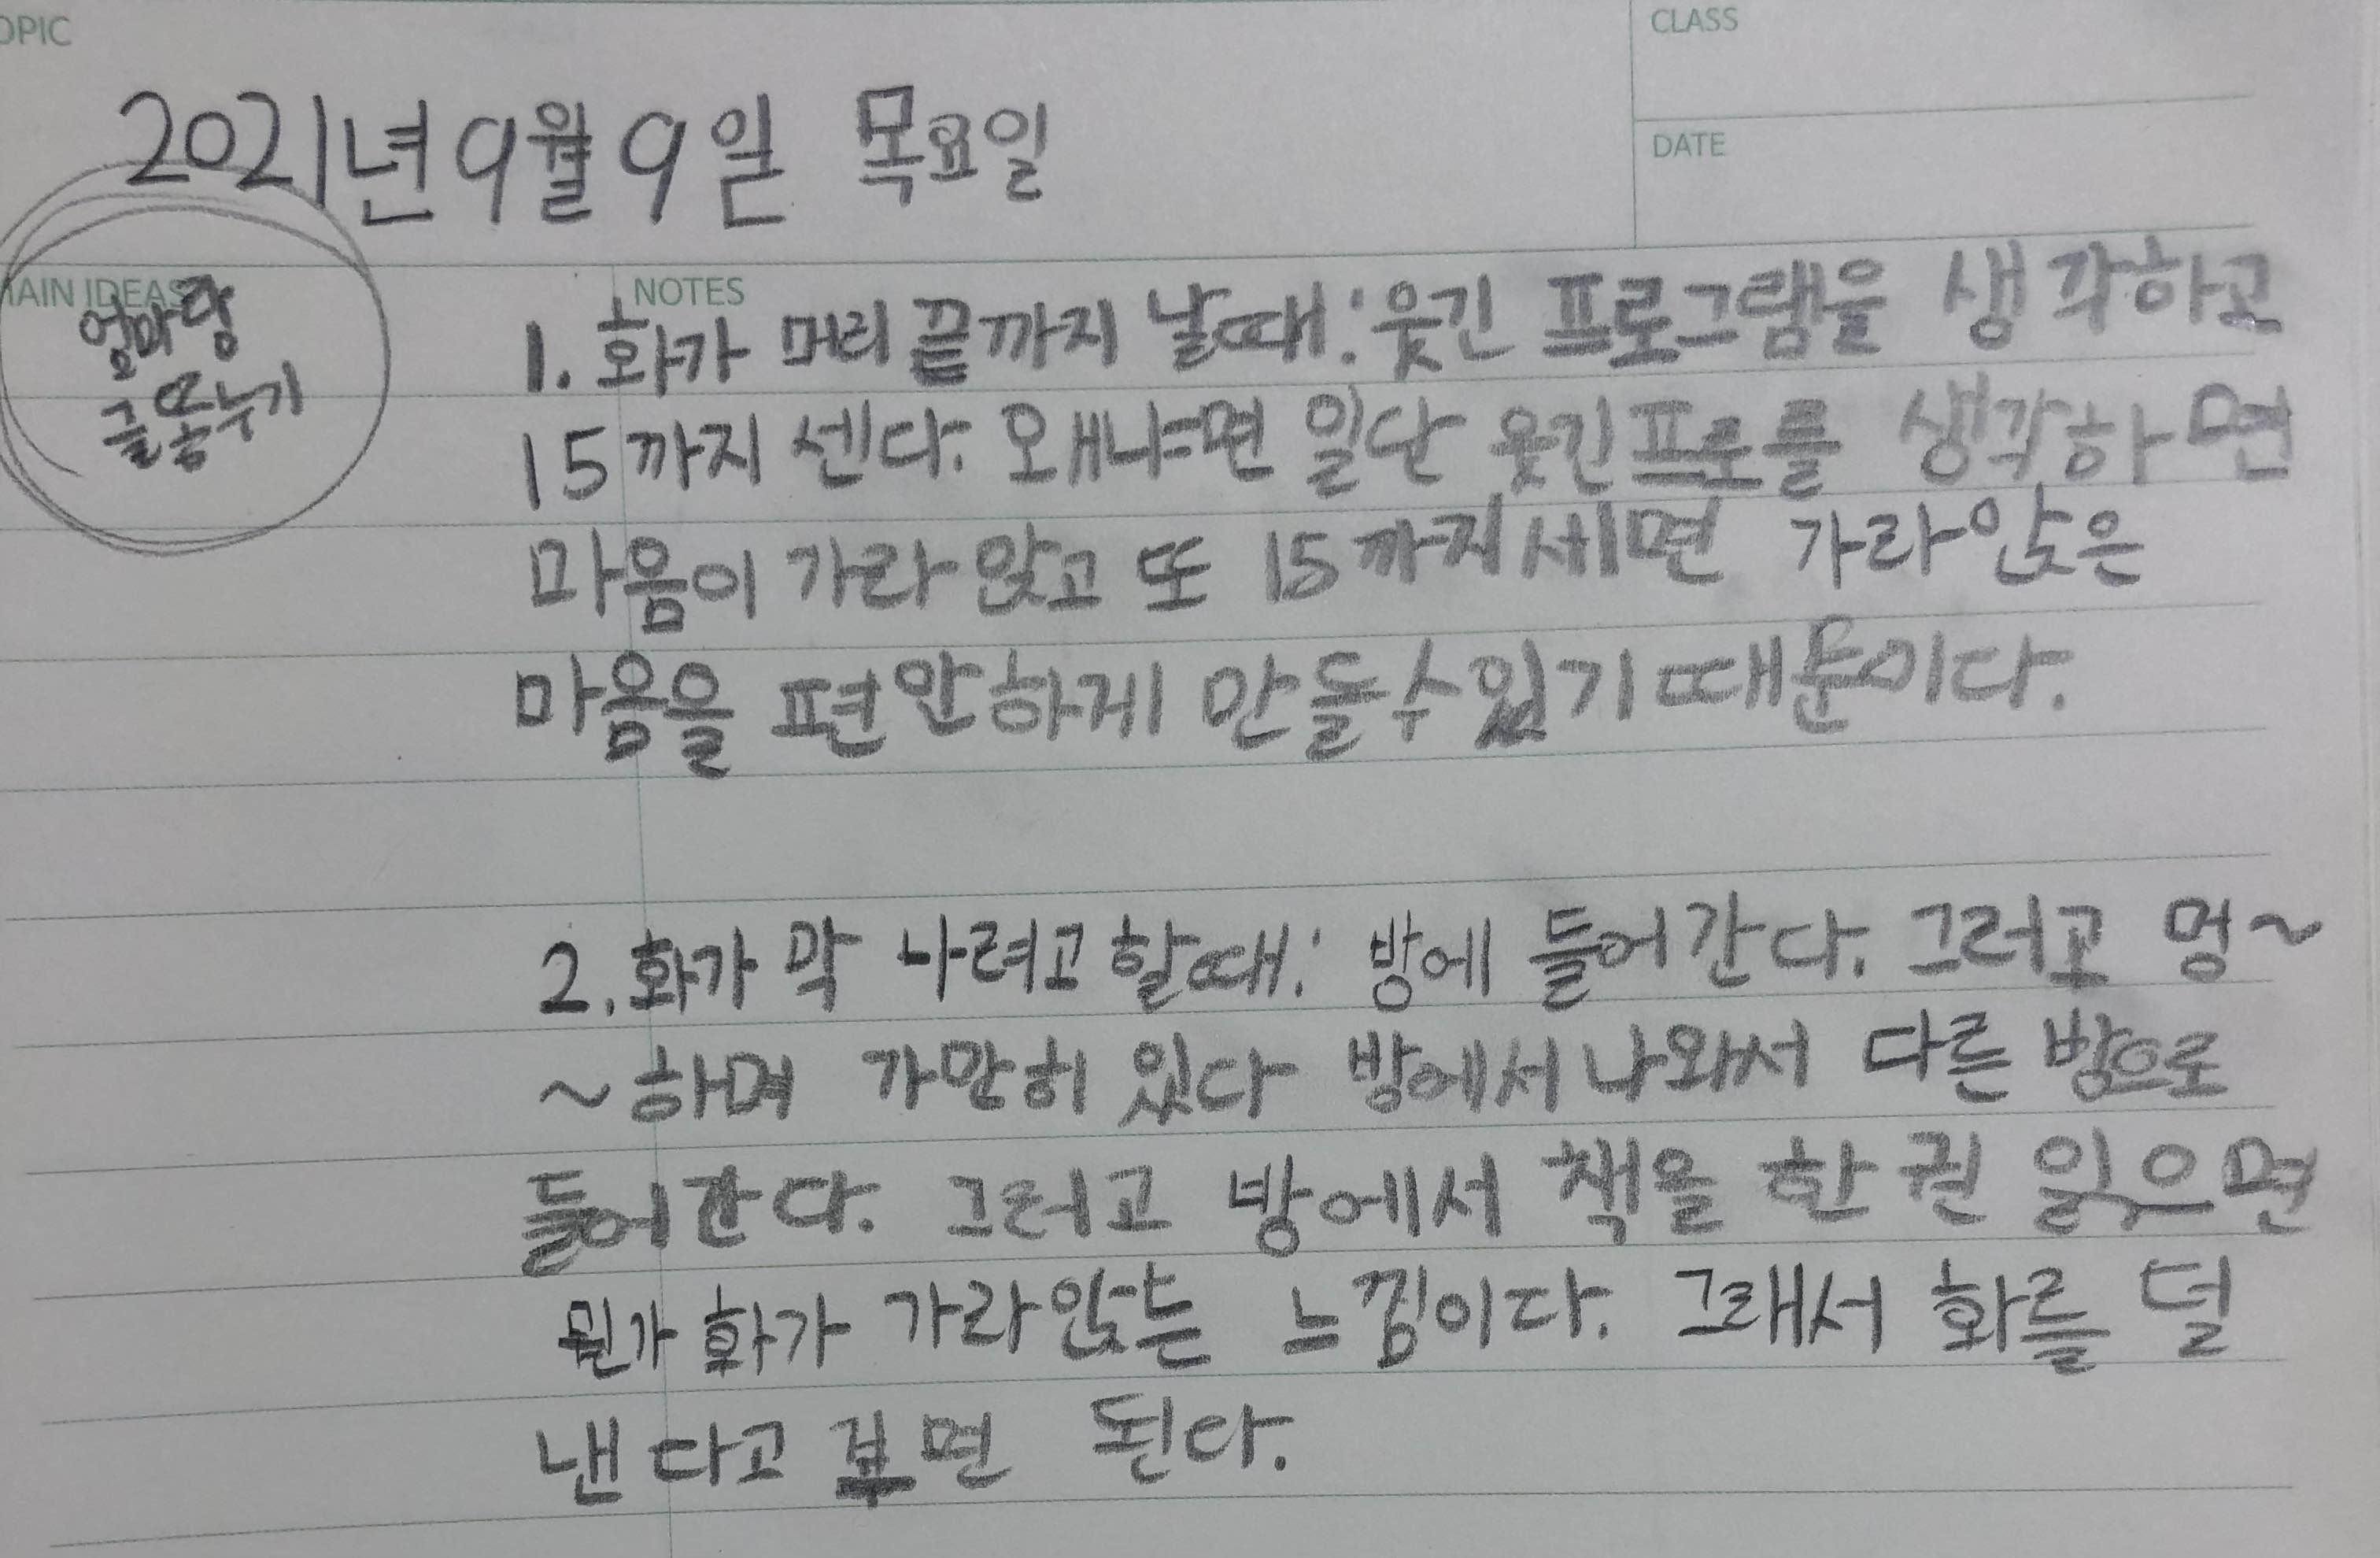 OPIC
CLASS
2021년 9월 9일 목요일
DATE
AIN IDEAS
NOTES
엄마랑
글똥누기
1. 화가 머리 끝까지 날때: 웃긴 프로그램을 생각하고
15까지 센다. 왜냐면 일단 웃긴프로를 생각하면
마음이 가라 앉고 또 15까지세면 가라앉은
마음을 편안하게 만들수있기때문이다.
2. 화가 막 나려고할때: 방에 들어간다. 그러고 멍~
~하며 가만히 있다 방에서나와서 다른 방으로
들어간다. 그러고 방에서 책을 한 권 읽으면
뭔가 화가 가라앉는 느낌이다. 그래서 화를 덜
낸다고 보면 된다.